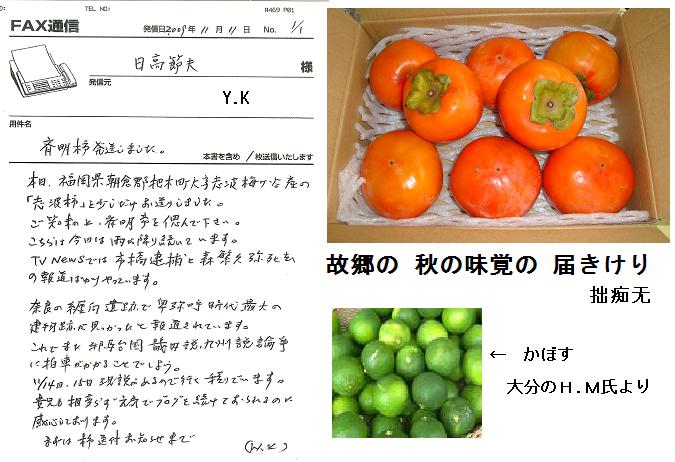 TEL NO:
#469 P01
FAX通信
発信日2009年 11月 11日 No. 1/1
日高節夫 様
発信元
Y.K
用件名
斉明柿発送しました。
本書を含め / 枚送信いたします
本日、福岡県朝倉郡杷木町大字志波梅ケ谷産の
「志波柿」を少しだけお送りしました。
ご笑味の上、斉明帝を偲んで下さい。
こちらは今日は雨が降り続いています。
TV Newsでは市橋逮捕と森繁久弥死去
の報道ばかりやっています。
奈良の纒向遺跡で卑弥呼時代最大の
建物跡が見つかったと報道されています。
これでまた邪馬台国畿内説、九州説論争
に拍車がかかることでしょう。
11/14日、15日現説があるので行く積りでいます。
貴兄も相変らず元気でブログを続けておられるのに
感心しております。
まずは柿送付お知らせまで
故郷の 秋の味覚の 届きけり
拙痴无
← かぼす
大分のH.M氏より